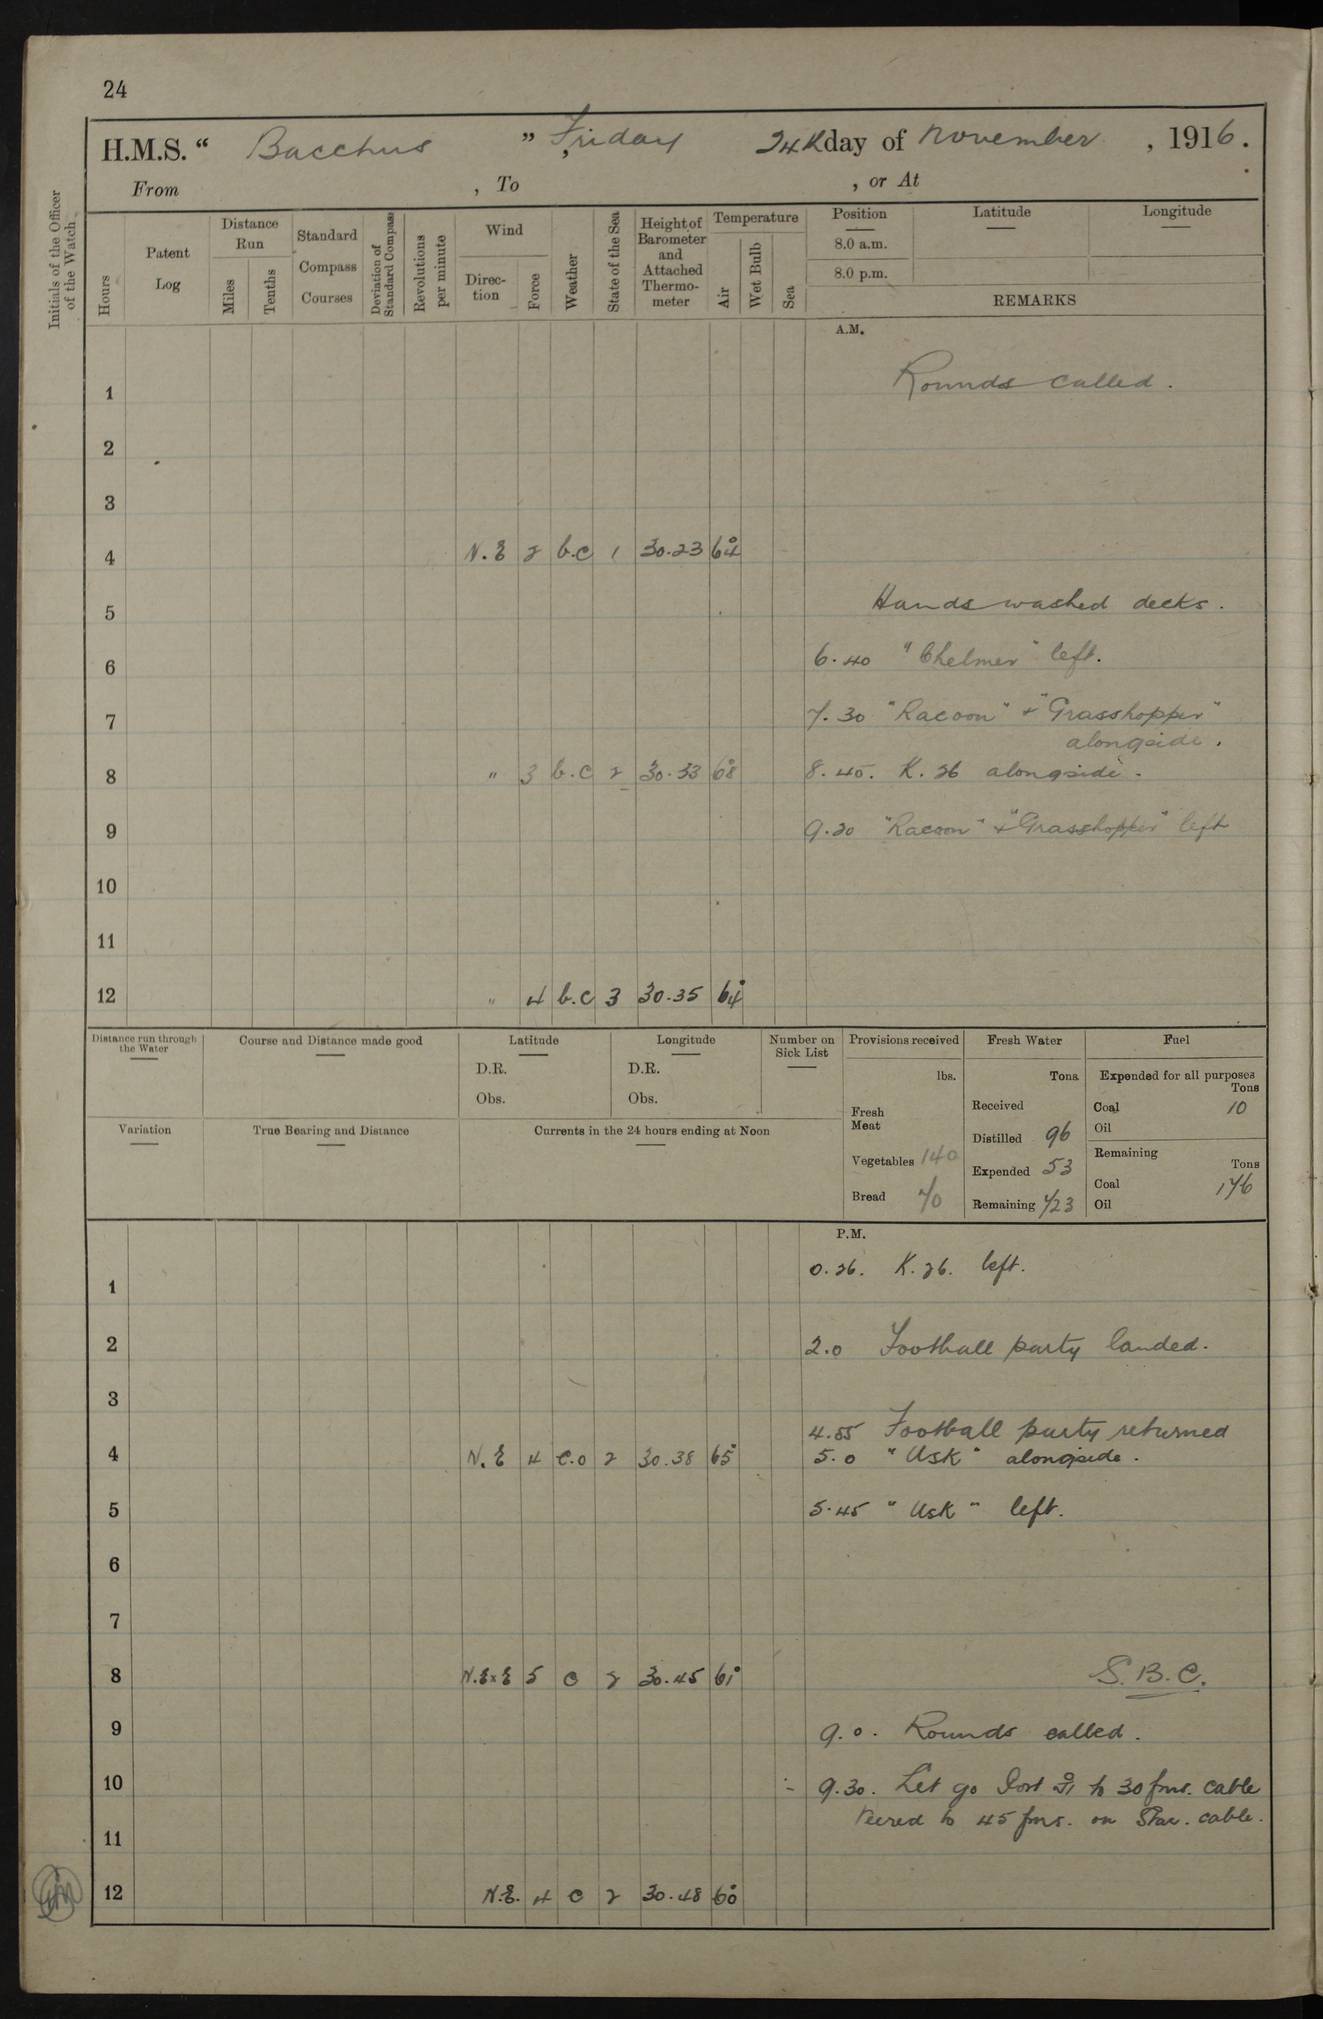 24
H.M.S. “ Bacchus ” Friday 24th day of November , 1916.
From , To , or At
Initials of the Officer of the Watch
Hours
Patent Log
Distance Run
Miles
Tenths
Standard Compass Courses
Deviation of Standard Compass
Revolutions per minute
Wind
Direc- tion
Force
Weather
State of the Sea
Height of Barometer and Attached Thermo- meter
Temperature
Air
Wet Bulb
Sea
Position Latitude Longitude
8.0 a.m.
8.0 p.m.
REMARKS
A.M.
1 Rounds called.
2
3
4 N.E 2 b.c 1 30.23 64°
5 Hands washed decks.
6 6.40 "Chelmer" left.
7 7.30 "Racoon" + "Grasshopper"
alongside.
8 " 3 b.c 2 30.33 68° 8.45. K.26 alongside.
9 9.20 "Racoon" + "Grasshopper" left
10
11
12 " 4 b.c 3 30.35 64°
Distance run through the Water
Course and Distance made good
Latitude
D.R.
Obs.
Longitude
D.R.
Obs.
Number on Sick List
Variation
True Bearing and Distance
Currents in the 24 hours ending at Noon
Provisions received
lbs.
Fresh Meat
Vegetables 140
Bread 70
Fresh Water
Tons
Received
Distilled 96
Expended 53
Remaining 723
Fuel
Expended for all purposes
Tons
Coal 10
Oil
Remaining
Tons
Coal 176
Oil
P.M.
1 0.26. K.26. left.
2 2.0 Football party landed.
3
4.55 Football party returned
4 N.E 4 c.o 2 30.38 65° 5.0 "Usk" alongside.
5 5.45 "Usk" left.
6
7
8 N.ExE 5 c 2 30.45 61° S.B.C.
9 9.0. Rounds called.
10 9.30. Let go Port to 30 fms. cable
Veered to 45 fms. on Star. cable.
11
12 N.E. 4 c 2 30.48 60°